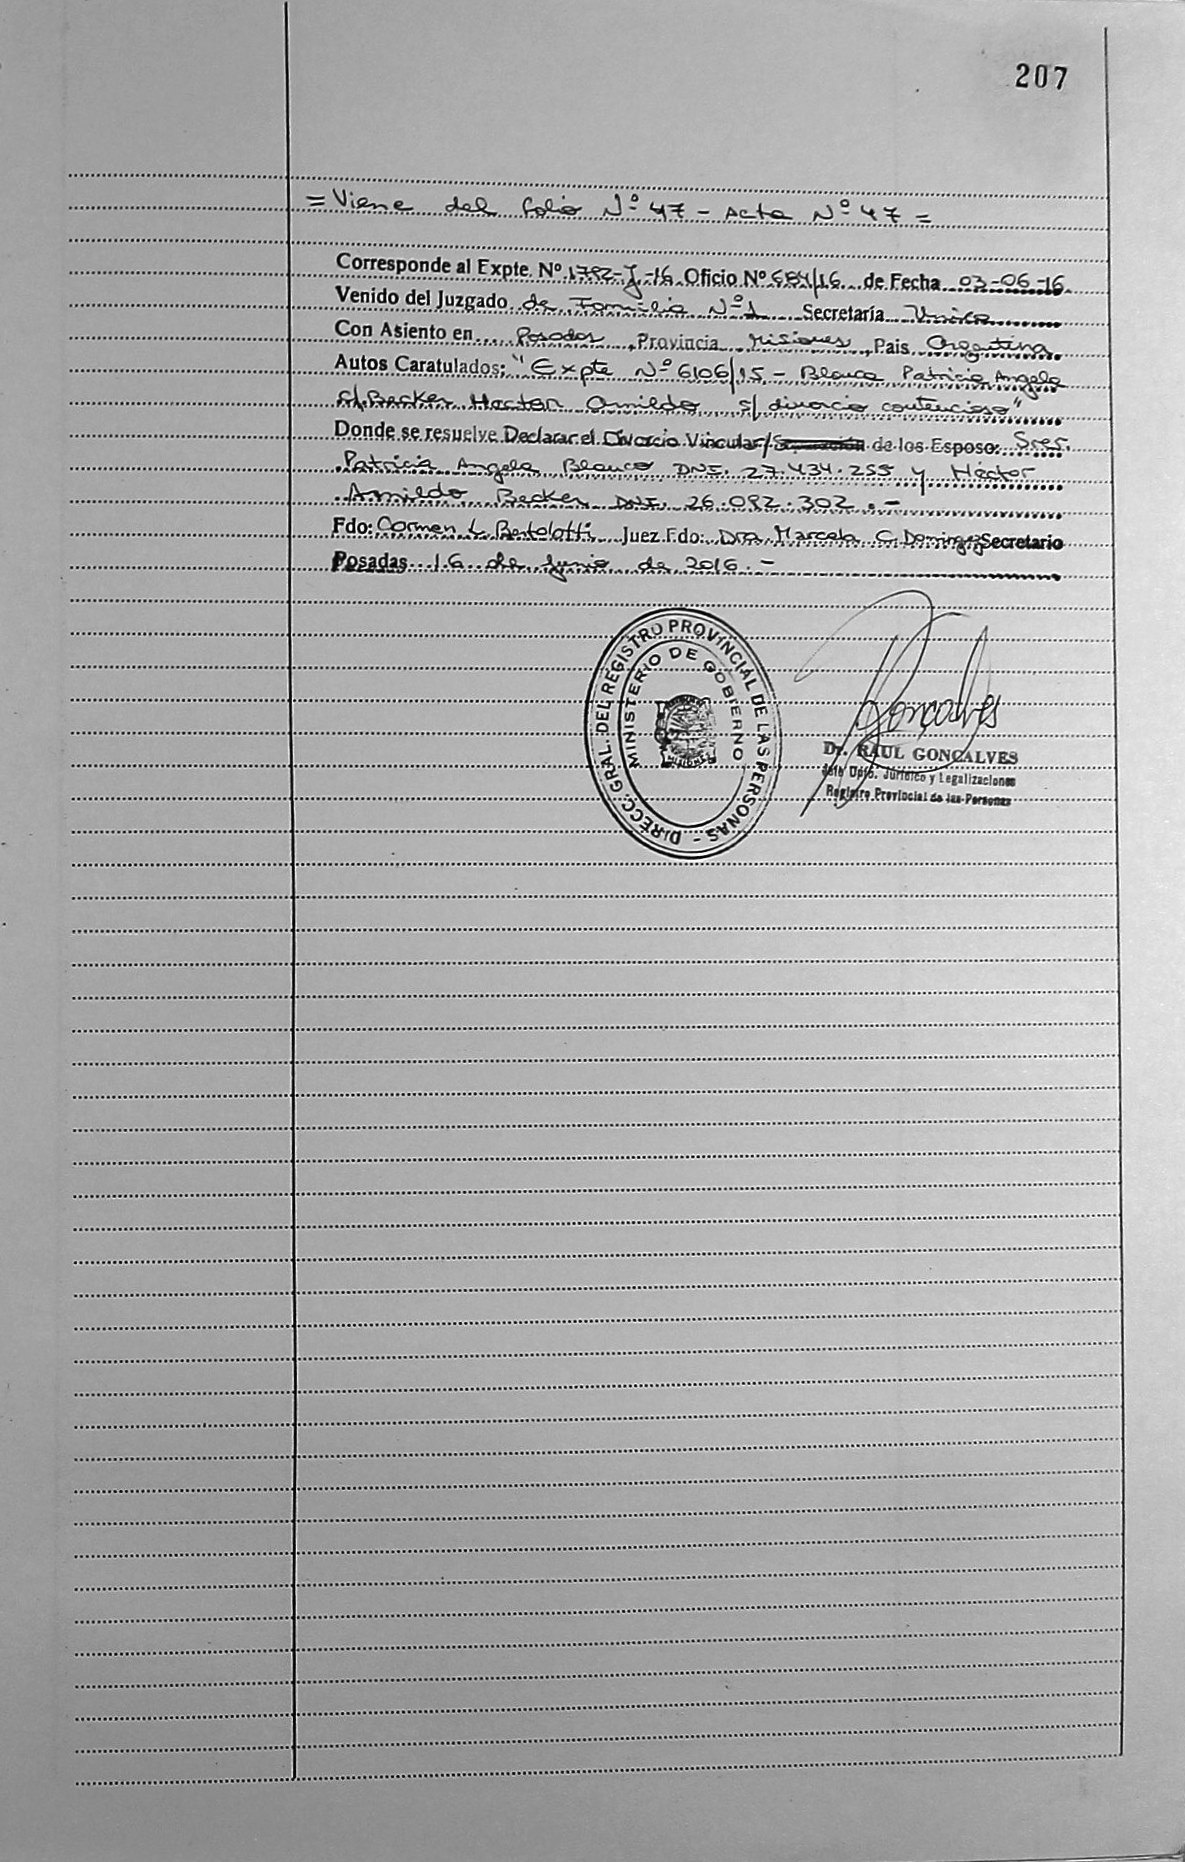 207
= Viene del folio Nº 47 - Acta Nº 47 =
Corresponde al Expte. Nº 1792-J-16 Oficio Nº 684/16 de Fecha 03-06-16
Venido del Juzgado de Familia Nº 1 Secretaría Unica
Con Asiento en Posadas Provincia Misiones Pais Argentina
Autos Caratulados: "Expte Nº 6106/15 - Blanco Patricia Angela
c/ Becker Hector Arnildo s/ divorcio contencioso"
Donde se resuelve Declarar el Divorcio Vincular/Separación de los Esposo: Sres.
Patricia Angela Blanco DNI. 27.434.255 y Héctor
Arnildo Becker DNI. 26.092.302.-
Fdo: Carmen L. Bertolotti Juez Fdo: Dra Marcela C. Dominguez Secretario
Posadas 16 de Junio de 2016.-
DIRECC. GRAL. DEL REGISTRO PROVINCIAL DE LAS PERSONAS -
MINISTERIO DE GOBIERNO
MISIONES
Goncalves
Dr. RAUL GONCALVES
Jefe Dpto. Jurídico y Legalizaciones
Registro Provincial de las Personas